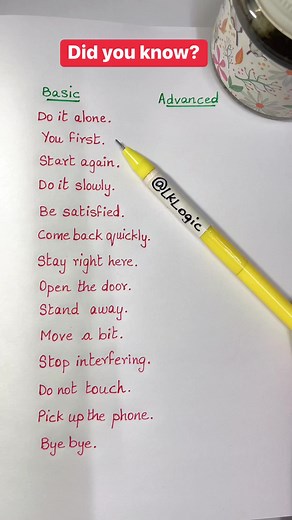 Did you know?
Basic
Advanced
Do it alone.
You first.
Start again.
Do it slowly.
Be satisfied.
Come back quickly.
Stay right here.
Open the door.
Stand away.
Move a bit.
Stop interfering.
Do not touch.
Pick up the phone.
Bye bye.
@LKLogic